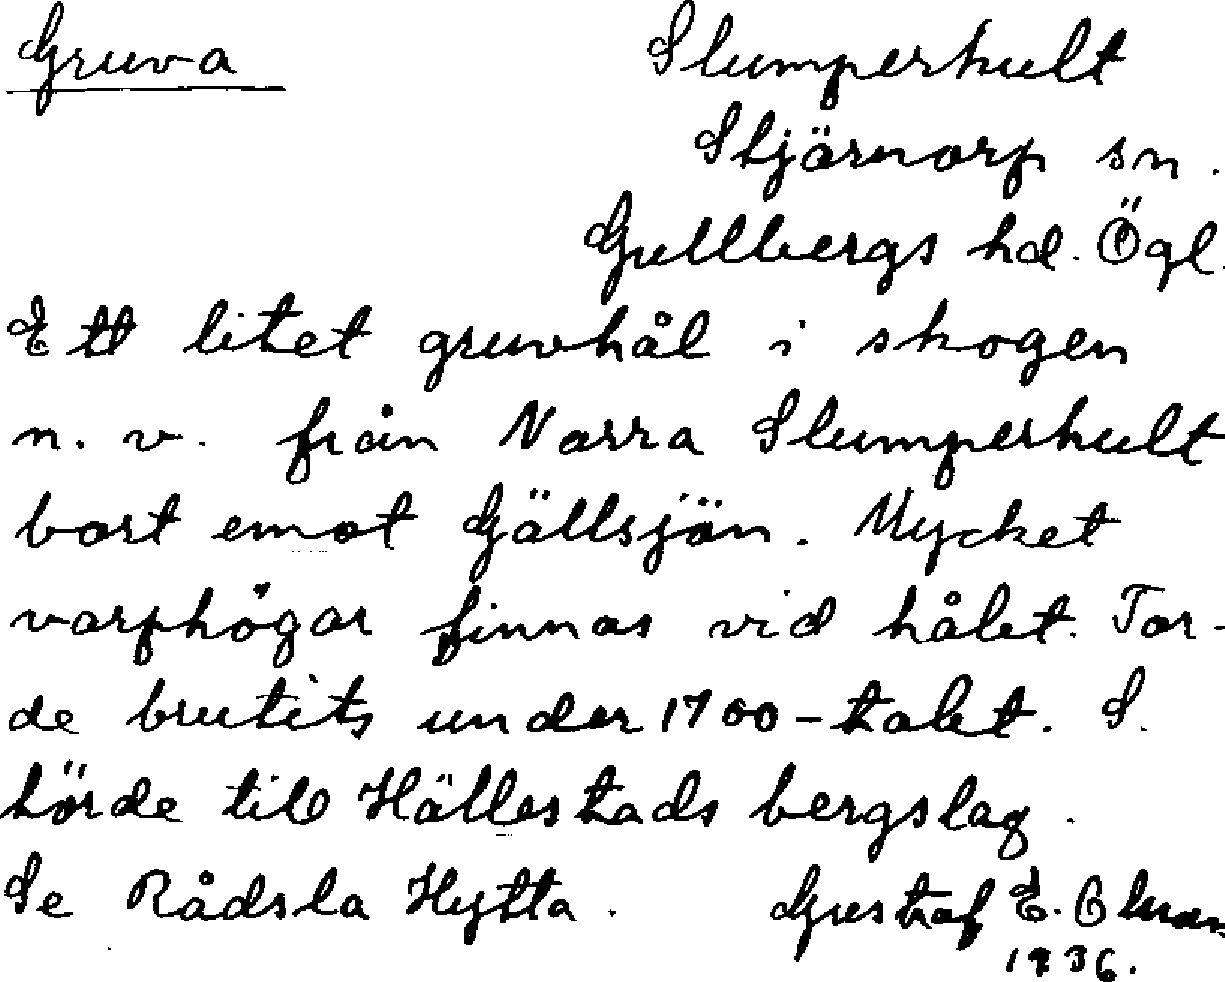 Gruva Slumperhult
Stjärnorp sn.
Gullbergs hd. Ögl.
Ett litet gruvhål i skogen
n. v. från Norra Slumperhult
bort emot Gällsjön. Mycket
varphögar finnas vid hålet. Tor-
de brutits under 1700-talet. S.
hörde till Hällestads bergslag.
Se Rådsla Hytta. Gustaf E.
1936.